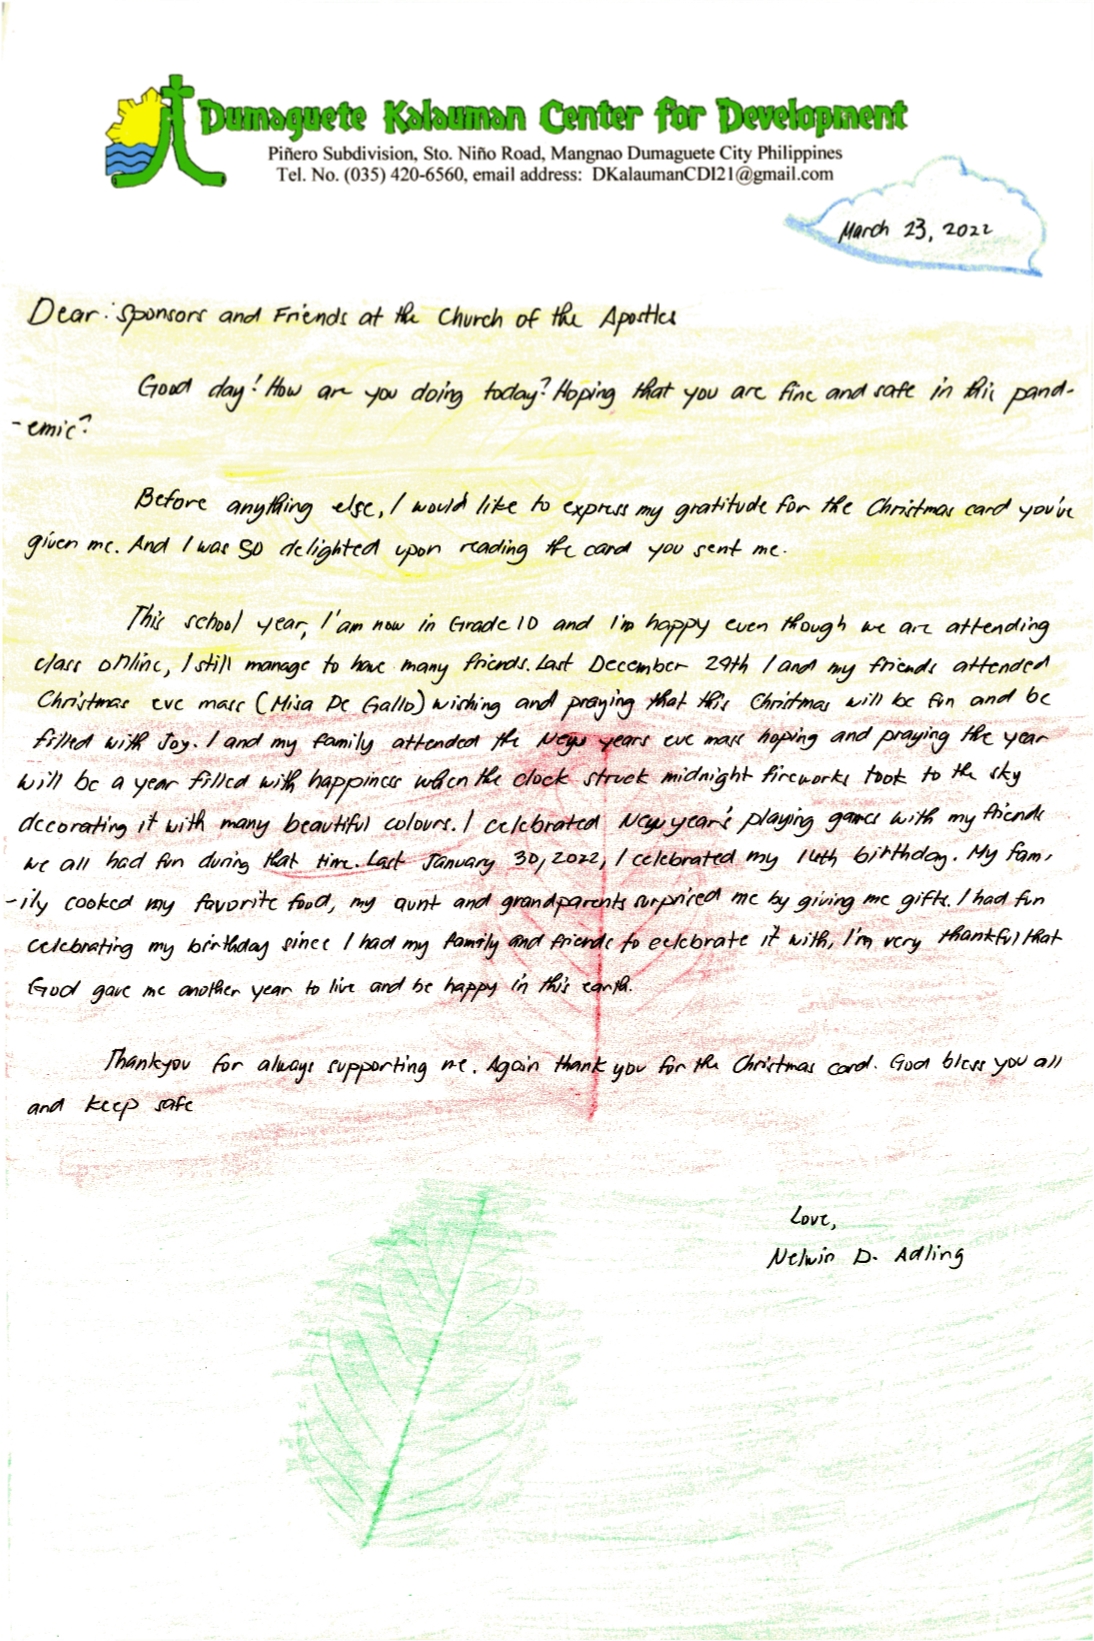 Dumaguete Kalauman Center for Development
Piñero Subdivision, Sto. Niño Road, Mangnao Dumaguete City Philippines
Tel. No. (035) 420-6560, email address: DKalaumanCDI21@gmail.com
March 23, 2022
Dear: Sponsors and Friends at the Church of the Apostles
Good day! How are you doing today? Hoping that you are fine and safe in this pand-
-emic?
Before anything else, I would like to express my gratitude for the Christmas card you've
given me. And I was so delighted upon reading the card you sent me.
This school year, I'am now in Grade 10 and I'm happy even though we are attending
class online, I still manage to have many friends. Last December 24th I and my friends attended
Christmas eve mass (Misa De Gallo) wishing and praying that this Christmas will be fun and be
filled with Joy. I and my family attended the New years eve mass hoping and praying the year
will be a year filled with happiness when the clock struck midnight fireworks took to the sky
decorating it with many beautiful colours. I celebrated New year's playing games with my friends
we all had fun during that time. Last January 30, 2022, I celebrated my 16th birthday. My fam-
-ily cooked my favorite food, my aunt and grandparents surprised me by giving me gifts. I had fun
celebrating my birthday since I had my family and friends to celebrate it with, I'm very thankful that
God gave me another year to live and be happy in this earth.
Thankyou for always supporting me. Again thank you for the Christmas card. God bless you all
and keep safe
Love,
Nelwin D. Adling